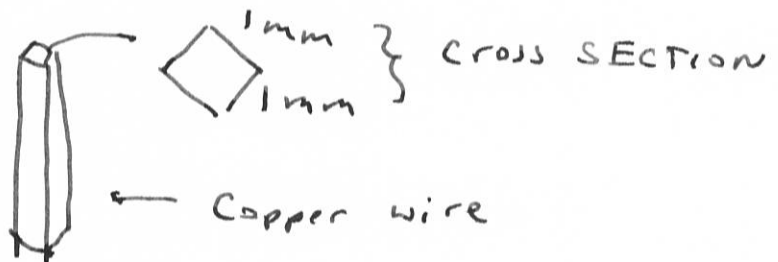 1mm
1mm
Cross SECTION
Copper wire